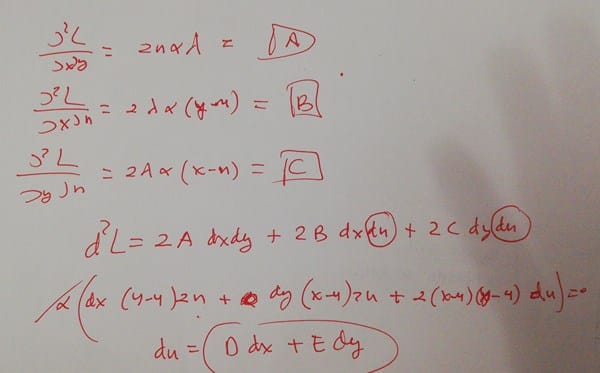 ∂²L/∂x∂y = 2nαλ = A
∂²L/∂x∂n = 2λα(y-n) = B
∂²L/∂y∂n = 2λα(x-n) = C
d²L = 2A dxdy + 2B dx du + 2C dy du
α(dx (y-u)2u + dy (x-u)2u + 2(x-u)(y-u) du) = 0
du = D dx + E dy